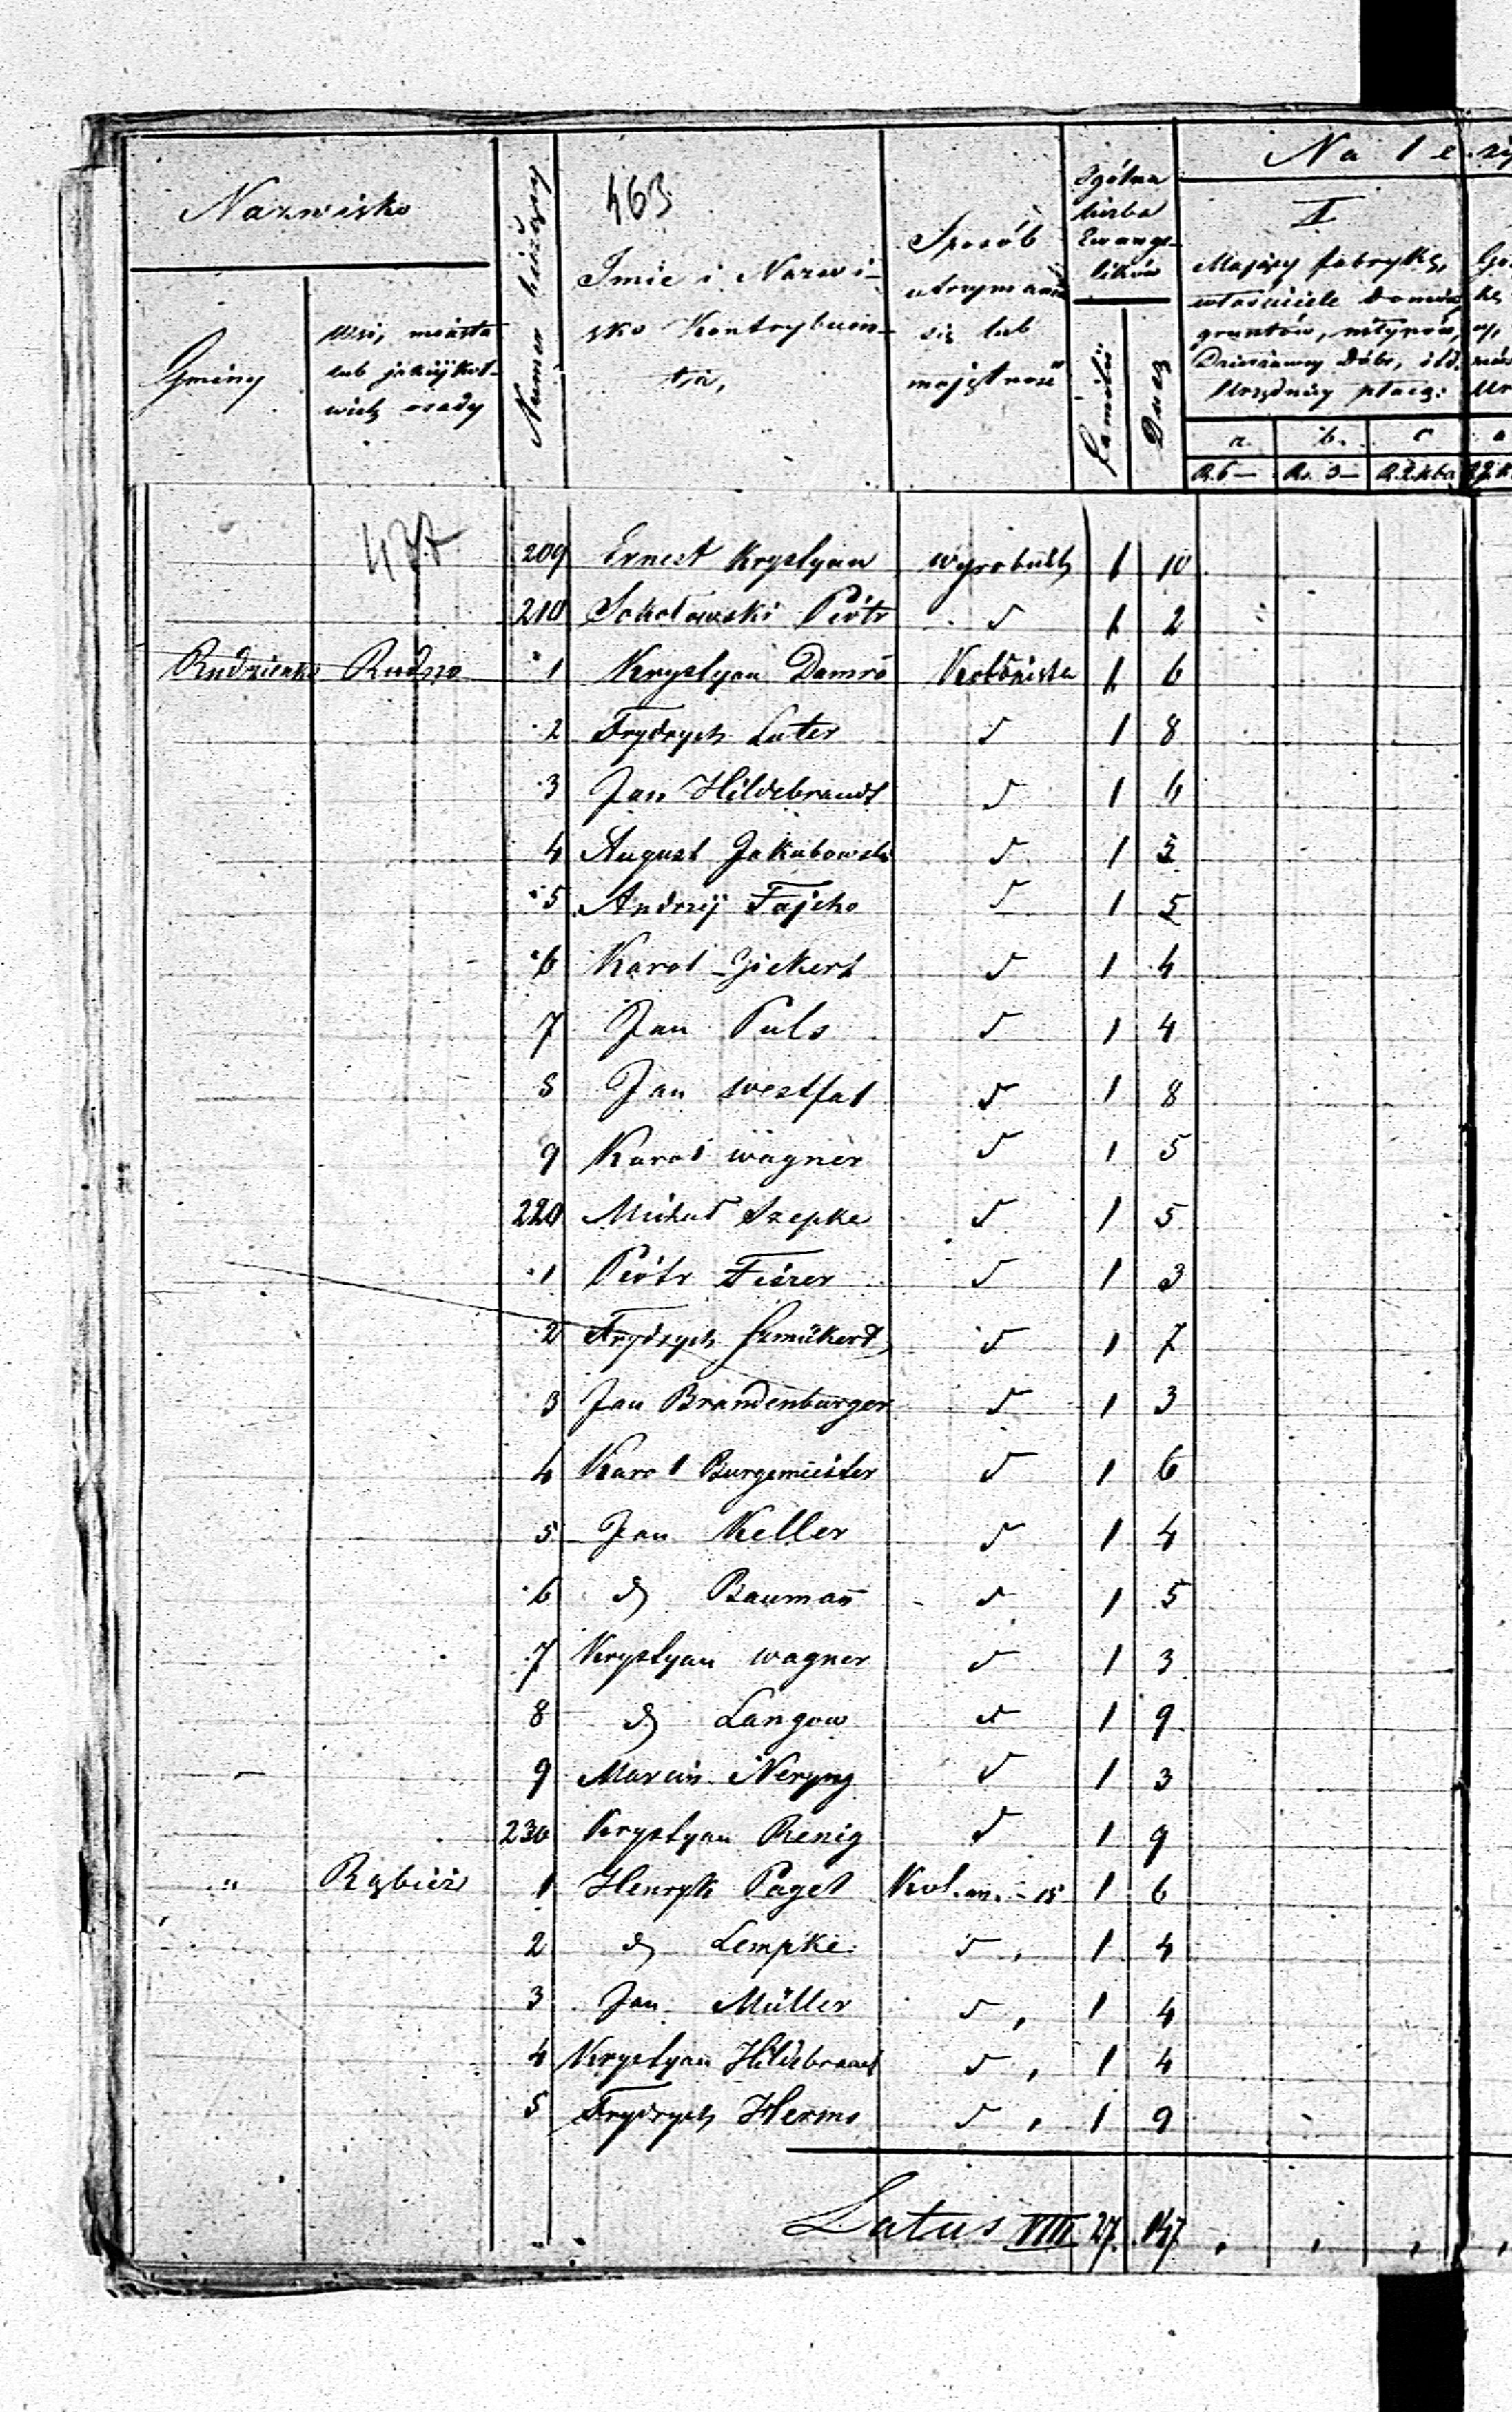 463
Nazwisko
Gminy
wsi, miasta
lub jakiejkol-
wiek osady
Numer bieżący
Imie i Nazwi-
sko Kontrybuen-
ta,
Sposób
utrzymania
się lub
majętność
Ogólna
liczba
Ewange-
lików
Familii
Dusz
Na l e ży
I
Mający fabrykę,
właściciele domów,
gruntów, młynów,
Dzierżawcy Dóbr, itd.
Urzędnicy płacą:
a. b. c
R. 6 — Rs. 3 —
437
209 Ernest Krystyan wyrobnik 1 10
210 Sokołowski Piotr d 1 2
Rudzienko Rudno 1 Krystyan Damró Kolonista 1 6
2 Frydrych Luter d 1 8
3 Jan Hildebrandt d 1 6
4 August Jakubowski d 1 5
5 Andrzij Fajcho d 1 5
6 Karol Zickert d 1 4
7 Jan Puls d 1 4
8 Jan Westfal d 1 8
9 Karol Wagner d 1 5
220 Michał Szepke d 1 5
1 Piotr Fiszer d 1 3
2 Frydrych Szmikert d 1 7
3 Jan Brandenburger d 1 3
4 Karol Burgemeister d 1 6
5 Jan Keller d 1 4
6 d Bauman̄ d 1 5
7 Krystyan Wagner d 1 3
8 d Langow d 1 9
9 Marcin Neryng d 1 3
230 Krystyan Renig d 1 9
" Rąbież 1 Henryk Paget Kol. m. 15 1 6
2 d Lempke d , 1 4
3 Jan Müller d , 1 4
4 Krystyan Hildebrandt d , 1 4
5 Frydrych Herms d , 1 9
Latus VIII 27. 147